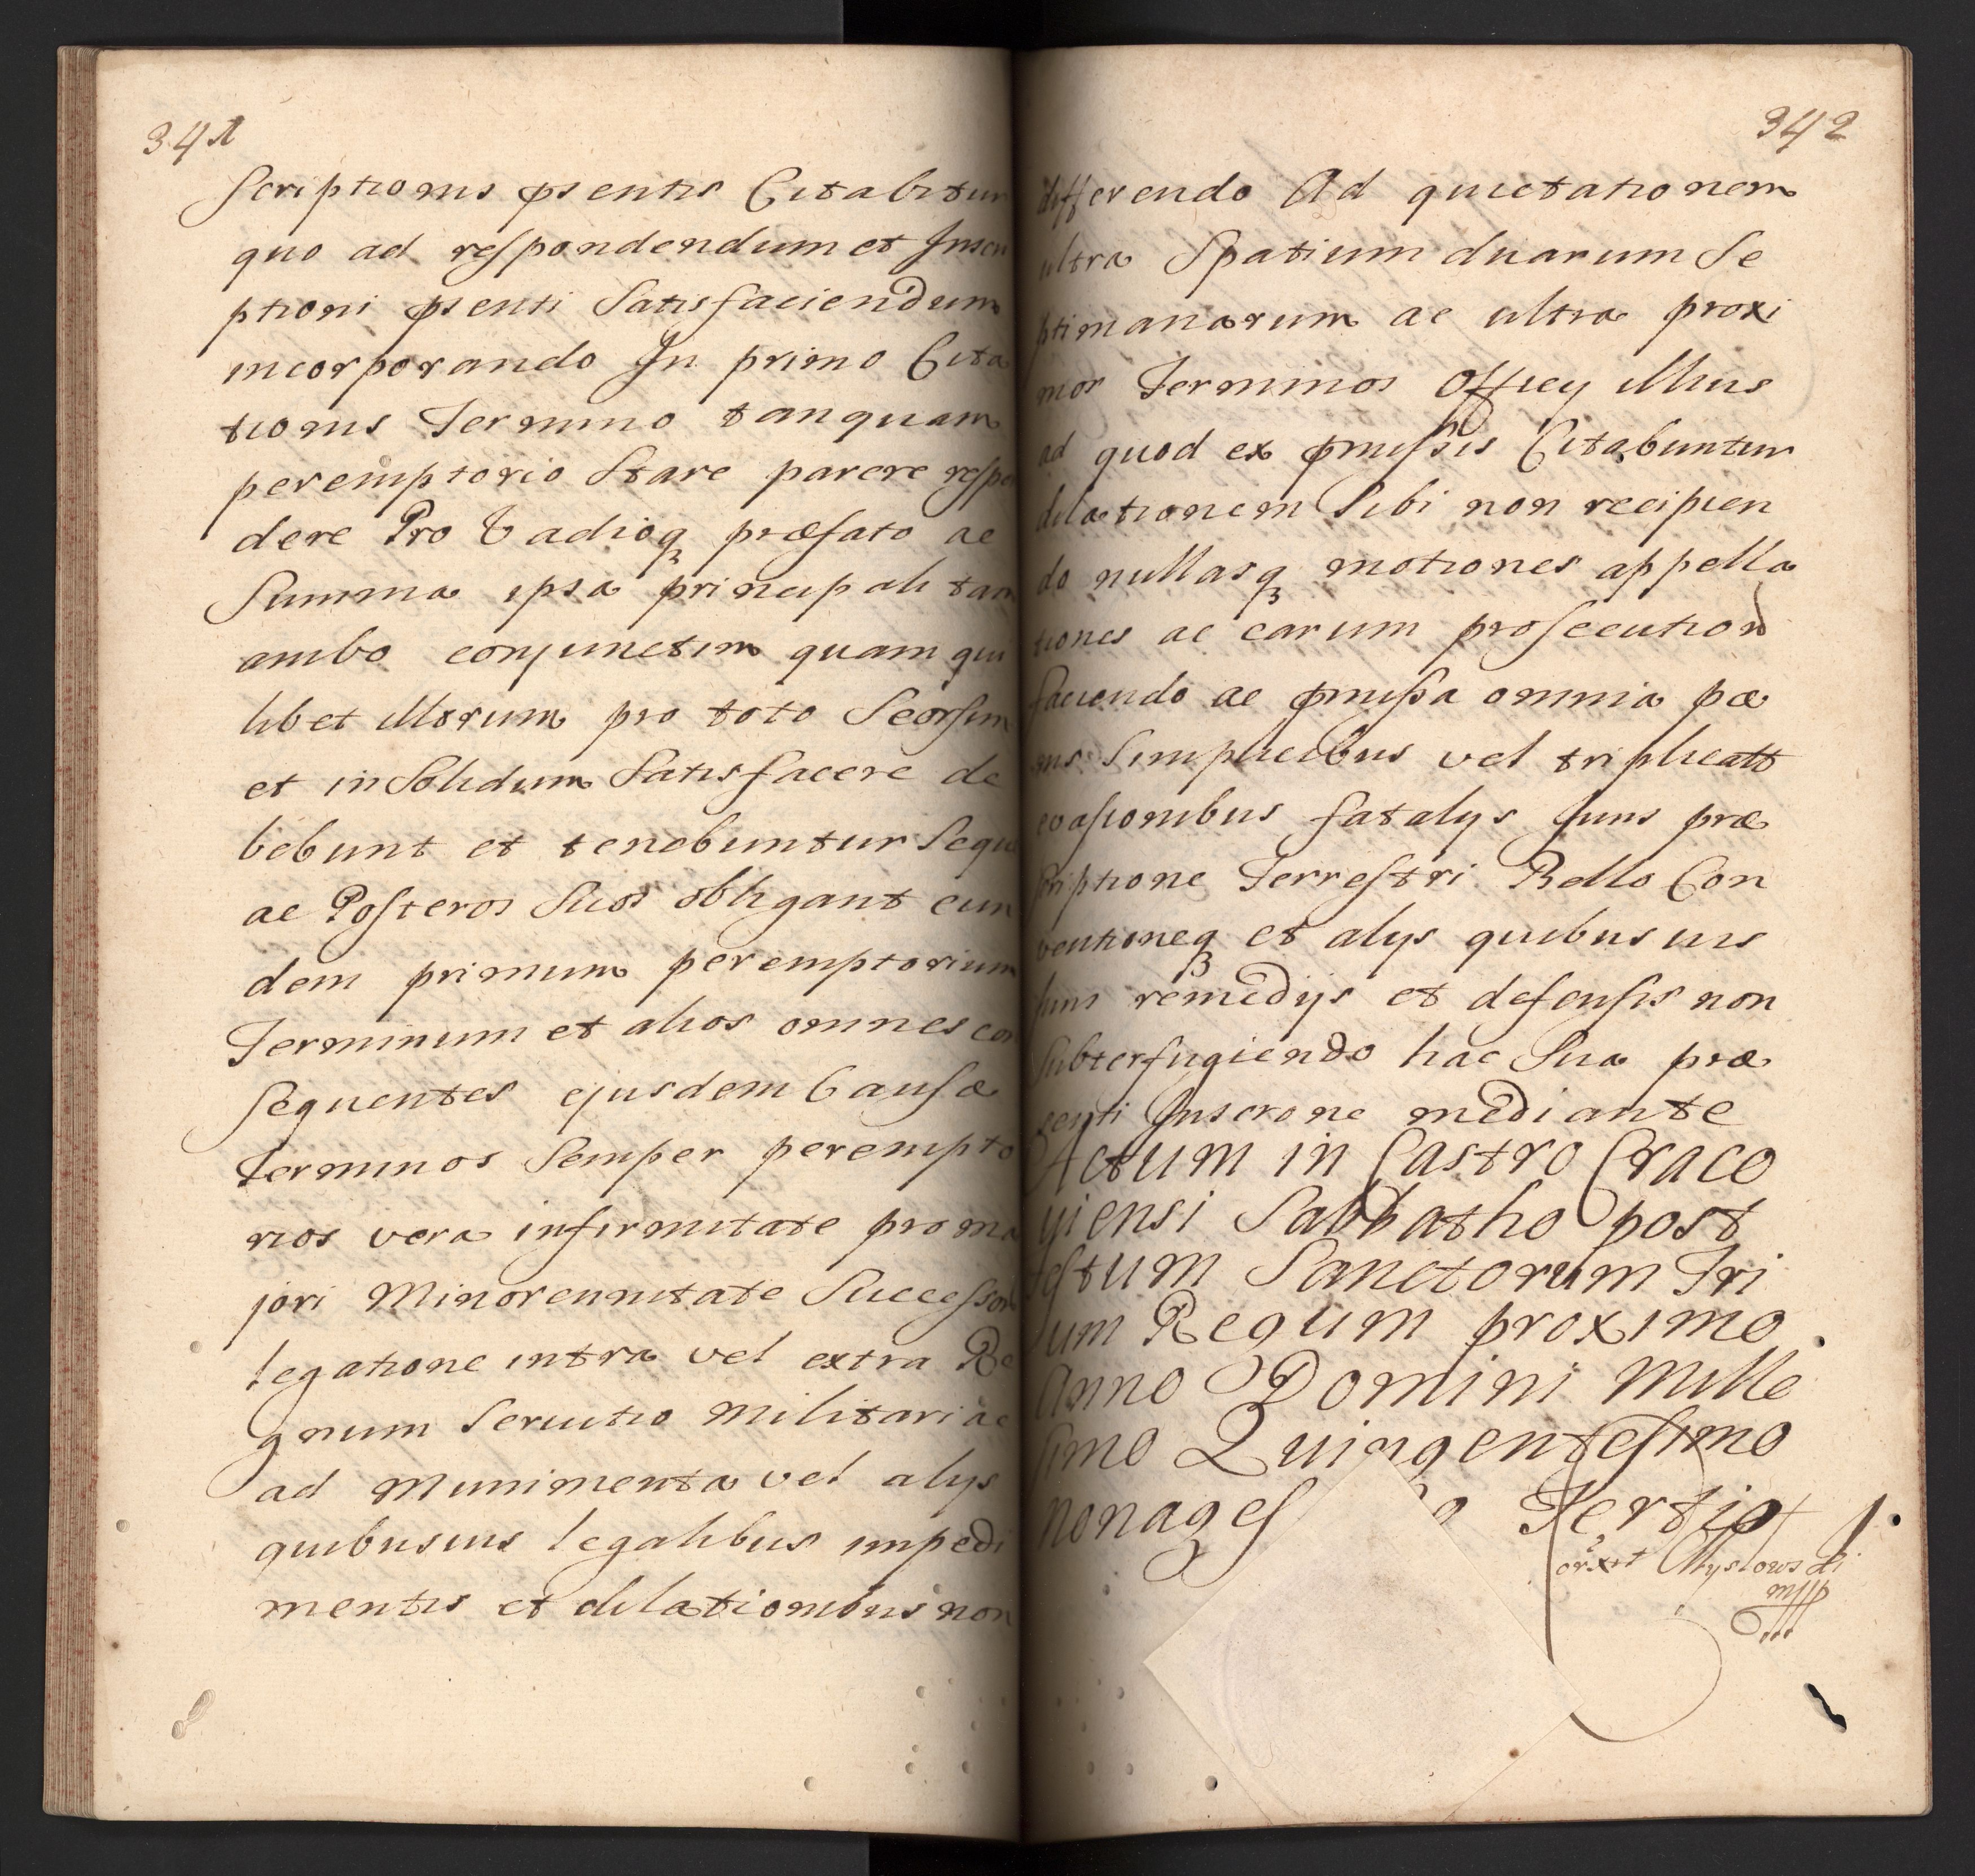 341
Scriptionis psentis Citabitur
quo ad respondendum et Inscri
ptioni psenti Satisfaciendum
incorporando In primo Cita
tionis Termino tanquam
peremptorio Stare parere respo
dere Pro Vadioq præfato ac
Summa ipsa principali tam
ambo conjunctim quam qui
libet illorum pro toto Seorsim
et in Solidum Satisfacere de
bebunt et tenebuntur Sequ
ac Posteros Suos obligant eun
dem primum peremptorium
Terminum et alios omnes con
sequentes ejusdem Causæ
Terminos Semper perempto
rios vera infirmitate pro ma
jori Minorennitate Successor
legatione intra vel extra Re
gnum Servitio Militari ac
ad Munimenta vel alys
quibusvis legalibus impedi
mentis et dilationibus non
342
differendo Ad quietationem
ultra Spatium duarum Se
ptimanarum ac ultra proxi
mos Terminos Officy illius
ad quod ex pmissis Citabuntur
dilationem Sibi non recipien
do nullasq motiones appella
tiones ac earum prosecution
faciendo ac pmissa omnia pæ
nis Simplicibus vel triplicatt
evasionibus fatalys Juris præ
scriptione Terrestri Bello Con
ventioneq et alys quibusvis
Juris remedys et defensis non
Subterfugiendo hac Sua præ
senti Inscrone mediante
Actum in Castro Craco
viensi Sabbatho post
festum Sanctorum Tri
um Regum proximo.
Anno Domini Mille
simo Quingentesimo
nonages o Tertio